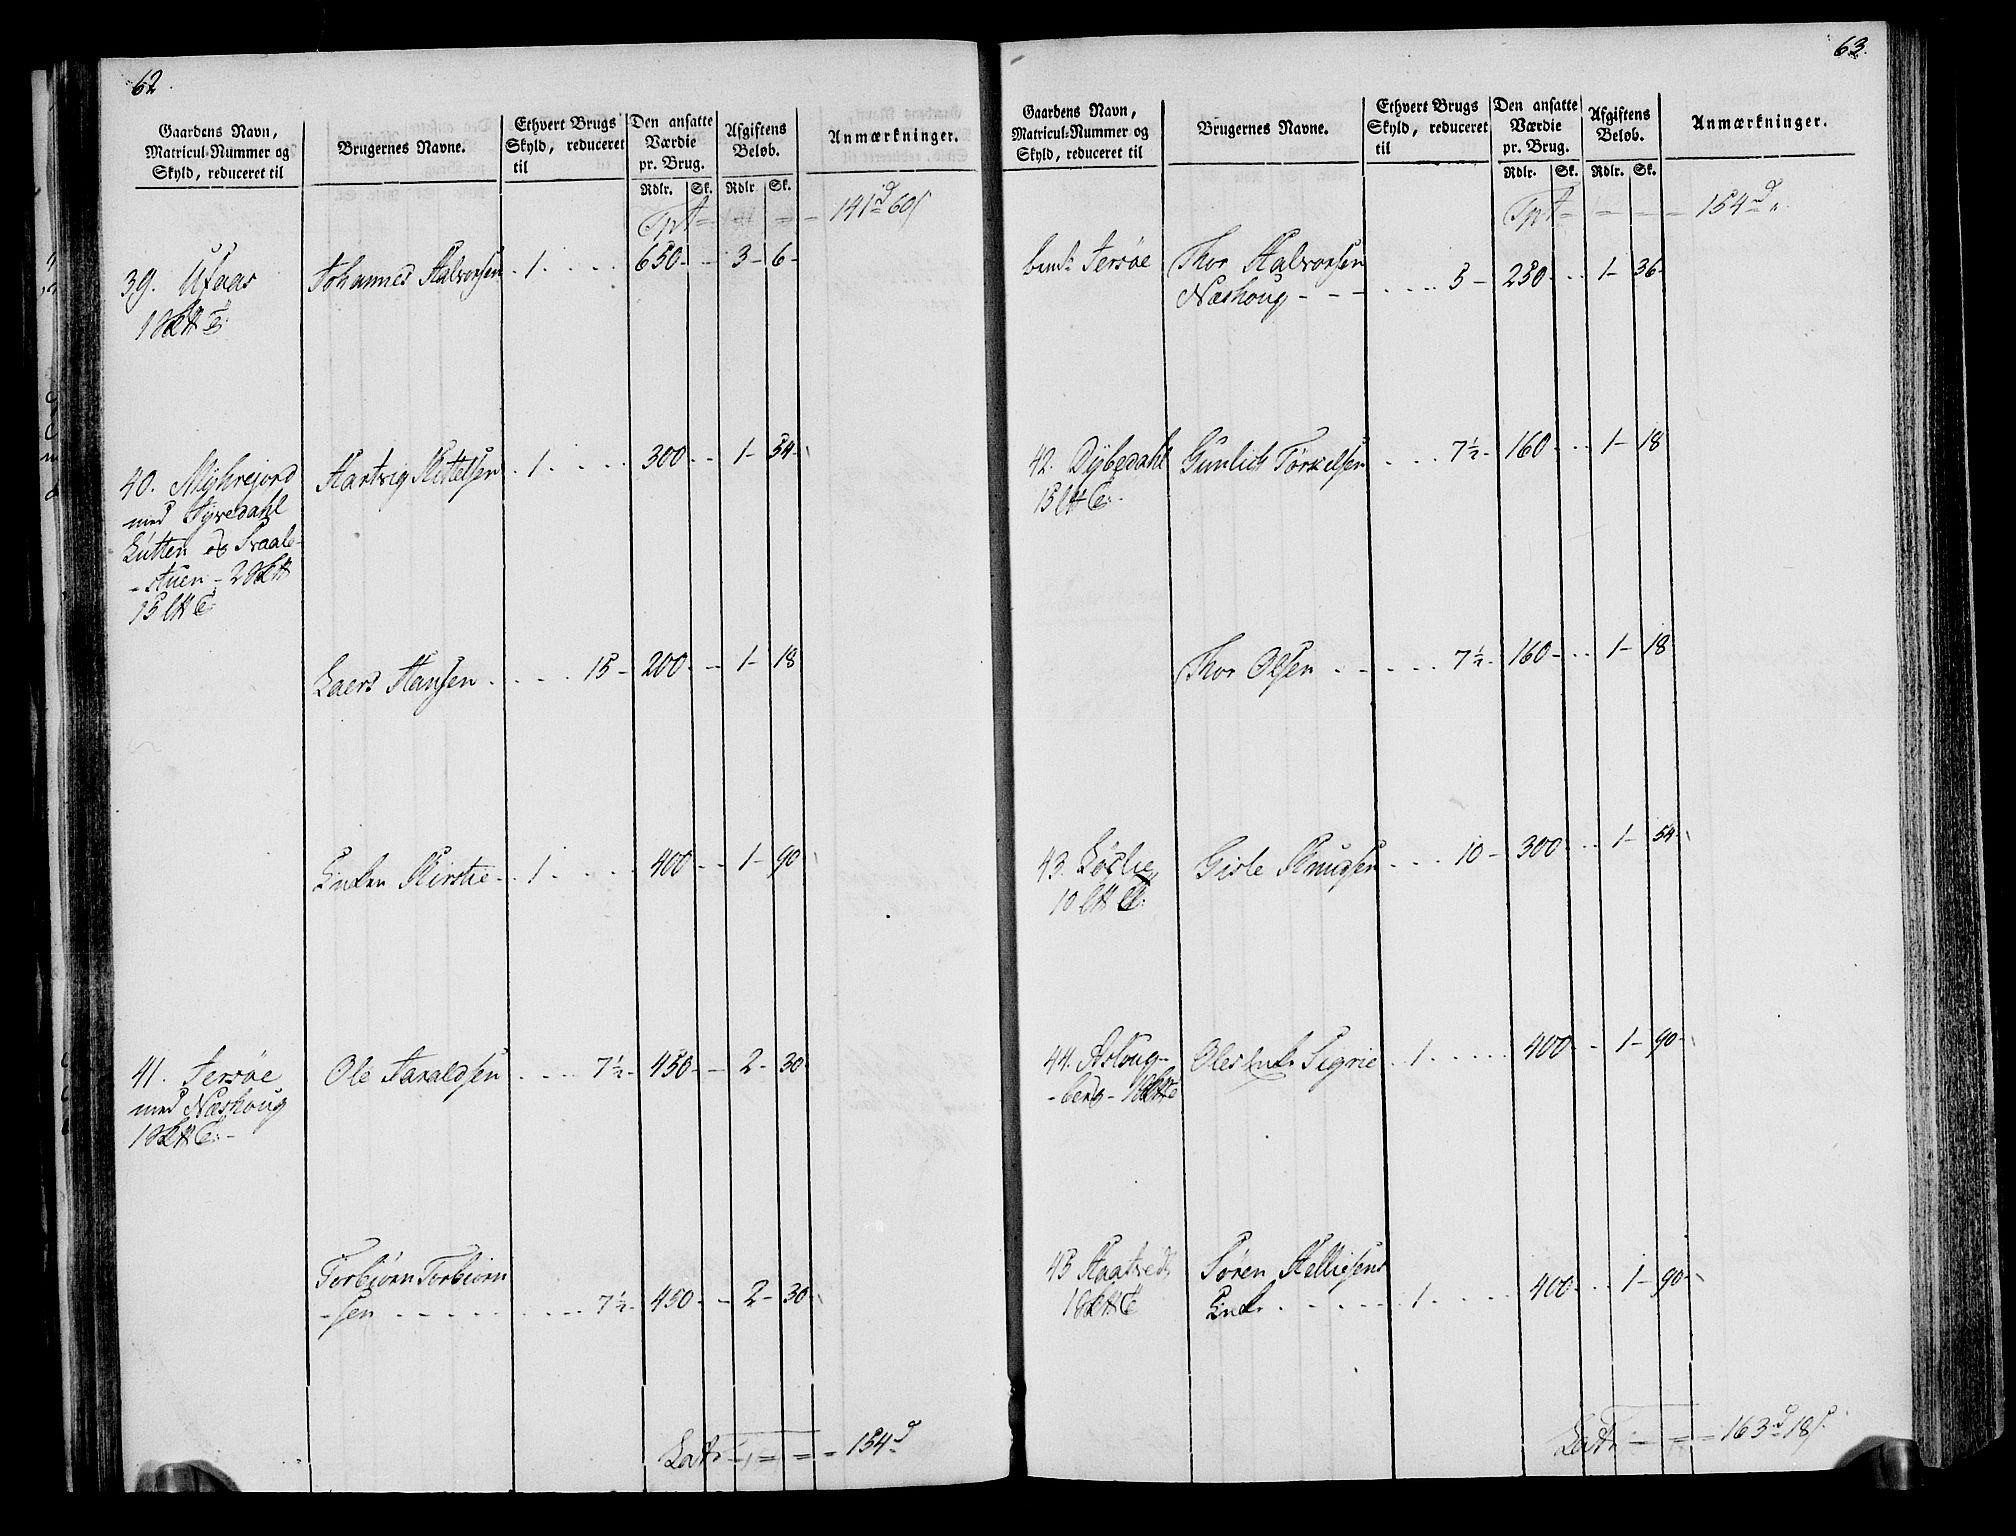 62.
Gaardens Navn,
Matricul-Nummer og
Skyld, reduceret til
Brugernes Navne.
Ethvert Brugs
Skyld, reduceret
til
Den ansatte
Værdie
pr. Brug.
Rdlr. Sk.
Afgiftens
Beløb.
Rdlr. Sk.
Anmærkninger.
Tpt = = = 141 d 60 s
39. Ufaas Johannes Halvorsen . 1 . . . . 650 - - 3 - 6 -
40. Myhrejord Hartvig Kittelsen . 1 . . . . 300 - - 1 - 54 -
med Tyvedahl
Lutten og Svale-
-stuen - 2
15
Laers Hansen . . . . 15 - 200 - - 1 - 18
Enken Kirstie - . 1 . . . . 400 - - 1 - 90
41. Jersøe Ole Taraldsen . . . . 7½ - 450 - - 2 - 30
med Næshoug
1
Torbiørn Torbiørn
-sen - - - - . . . . 7½ - 450 - - 2 - 30
Lat = = = 154 d
63.
Gaardens Navn,
Matricul-Nummer og
Skyld, reduceret til
Brugernes Navne.
Ethvert Brugs
Skyld, reduceret
til
Den ansatte
Værdie
pr. Brug.
Rdlr. Sk.
Afgiftens
Beløb.
Rdlr. Sk.
Anmærkninger.
Tpt = = = 154 d "
bemt Jersøe Thor Halvorsen
Næshoug - - - . . . . 5 - 250 - . . 1 - 36 -
42. Dybedahl Gunlich Torkelsen . . . 7½ - 160 - . . 1 - 18
15
Thor Olsen . . . . 7½ - 160 - . . 1 - 18
43. Løslie Gisle Knudsen . . . 10 - 300 - . . 1 - 54 -
10
44. Aslaug- Oles Enke Sigrie . 1 . . . . 400 - - 1 - 90 -
-berg - 1
45 Haatvedt Søren Kelliesens
1 Enke . . . . . 1 . . . . 400 - . . 1 - 90 -
Lat = = = 163 d 18 s